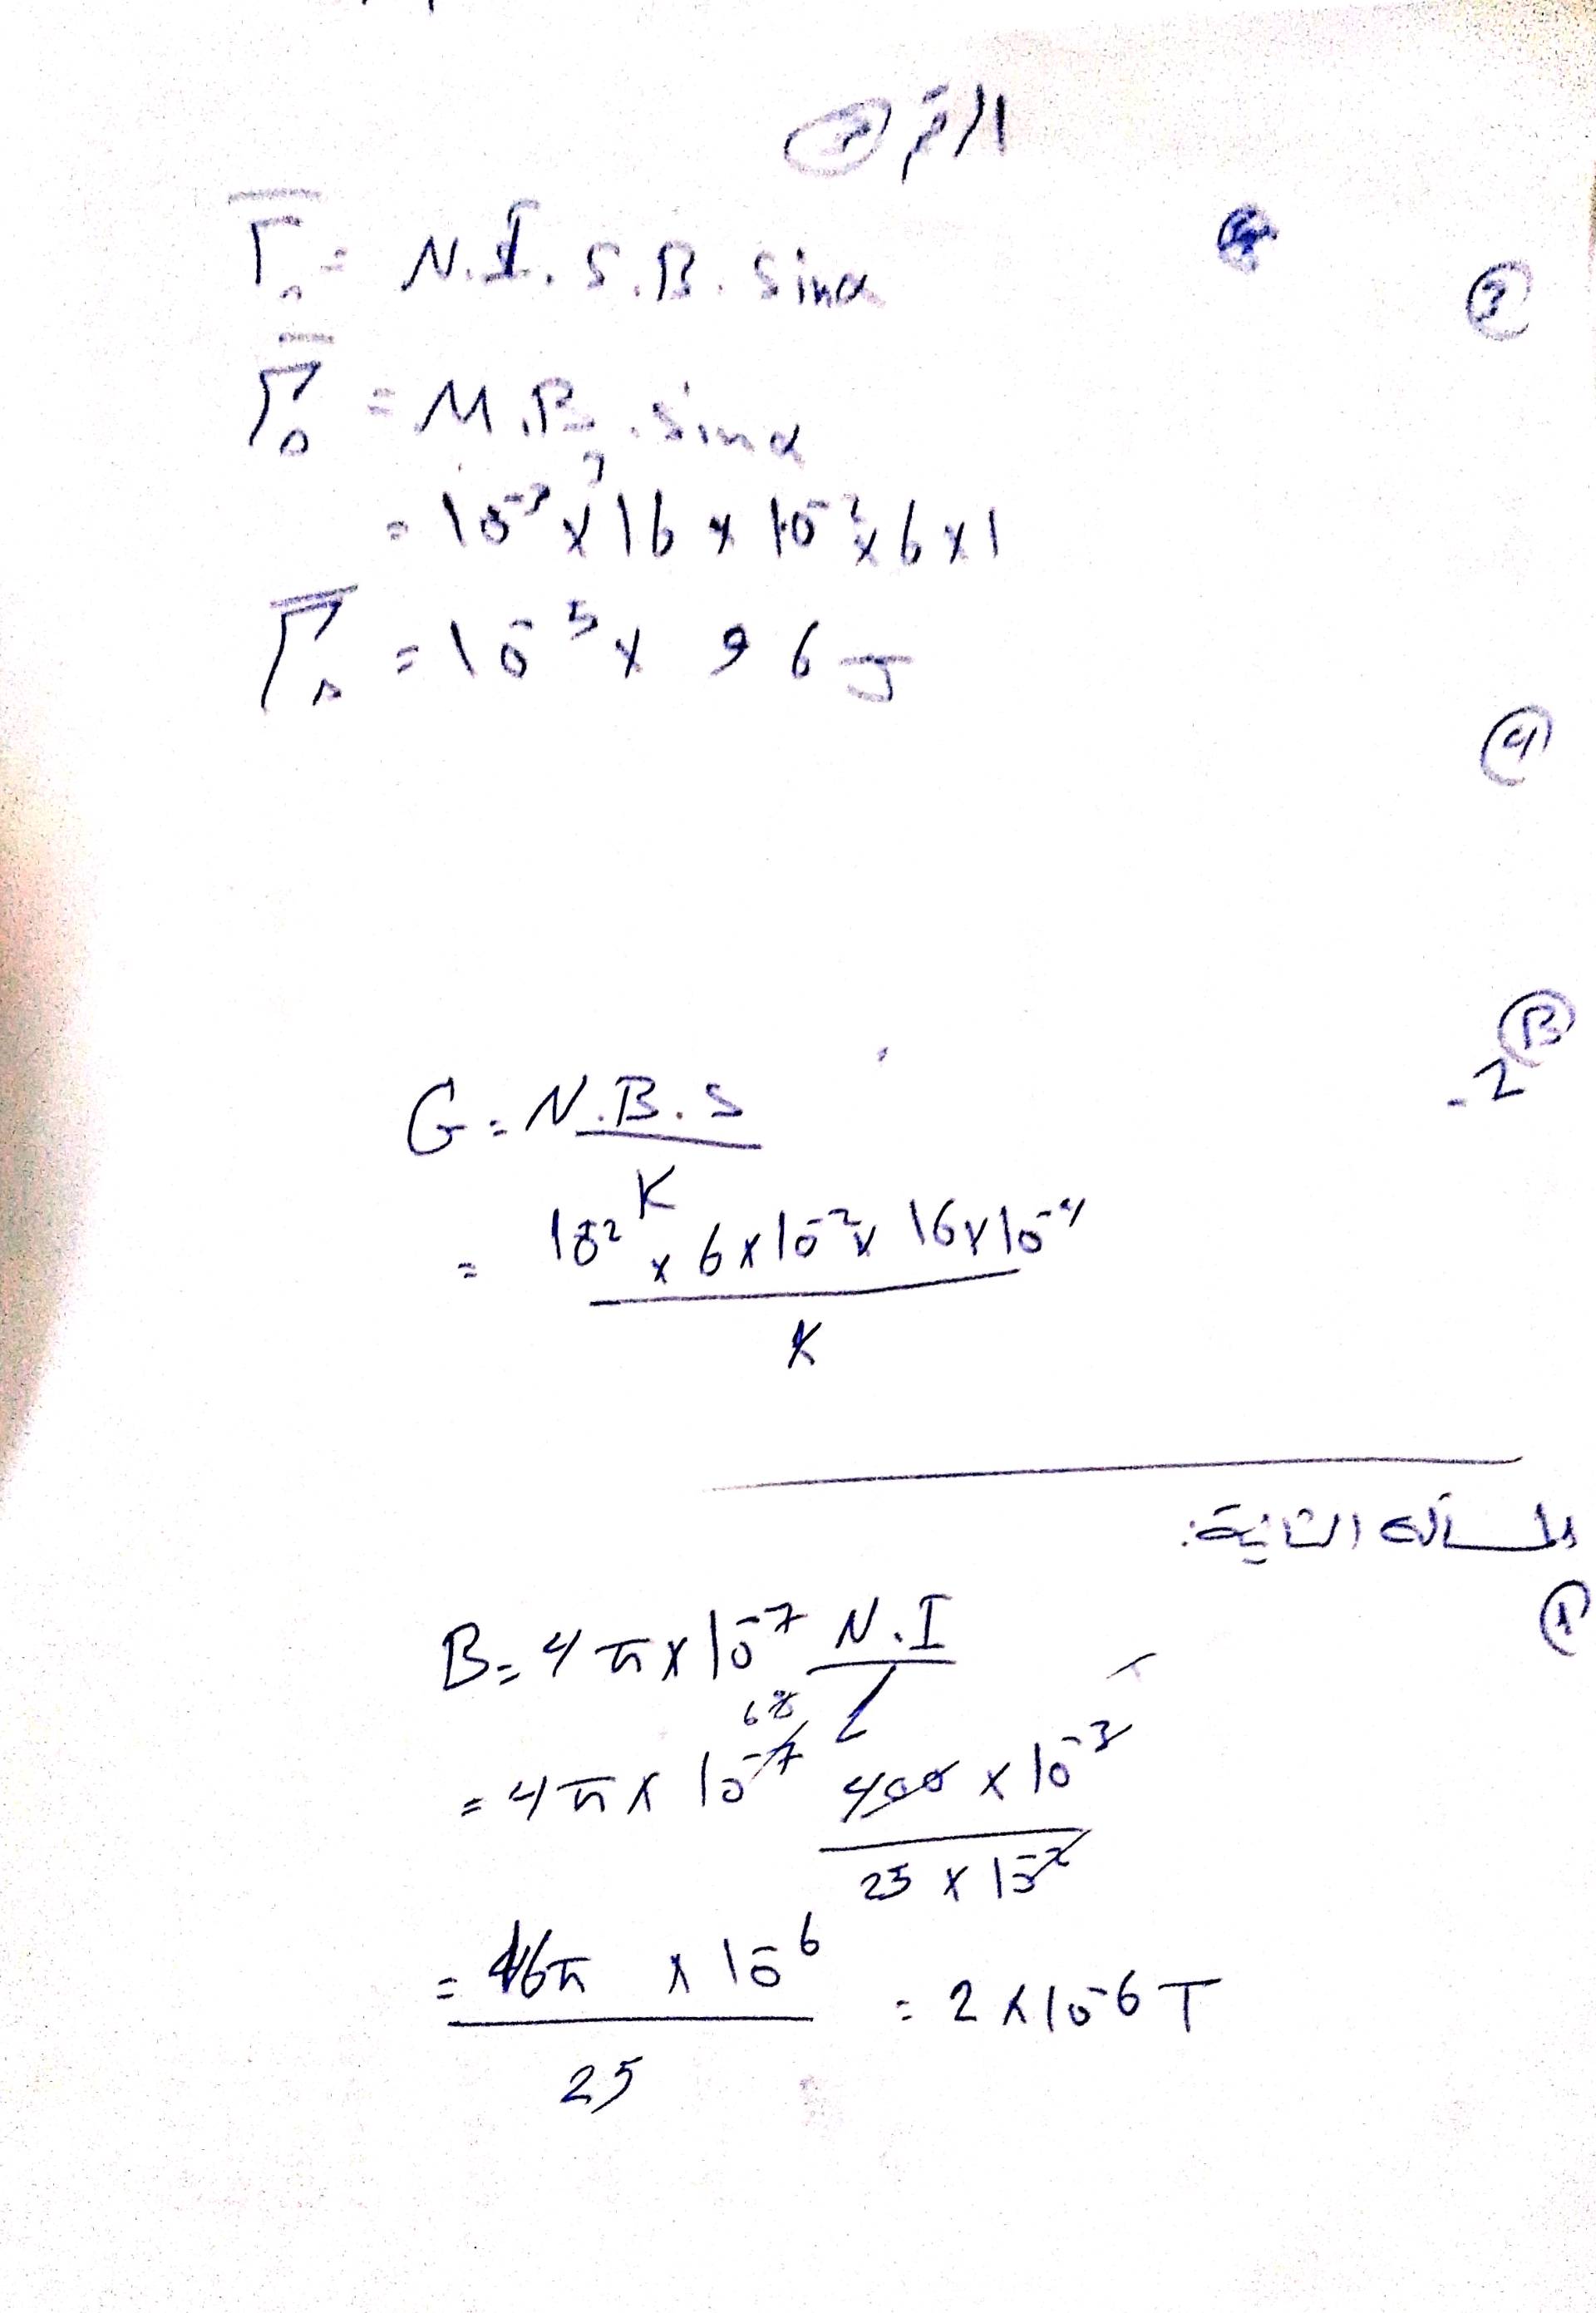 ③
Γ = N.I.S.B.sinα
Γ = M.B.sinα
= 10⁻³ × 16 × 10⁻² × 6 × 1
Γ = 10⁻⁵ × 96 J
④
Ⓑ
- 2
G = N.B.S / K
= 10² × 6 × 10⁻² × 16 × 10⁻⁴ / K
المسألة الثانية:
①
B = 4π × 10⁻⁷ N.I / l
= 4π × 10⁻⁷ 400 × 10⁻³ / 25 × 10⁻²
= 16π × 10⁻⁶ / 25 = 2 × 10⁻⁶ T